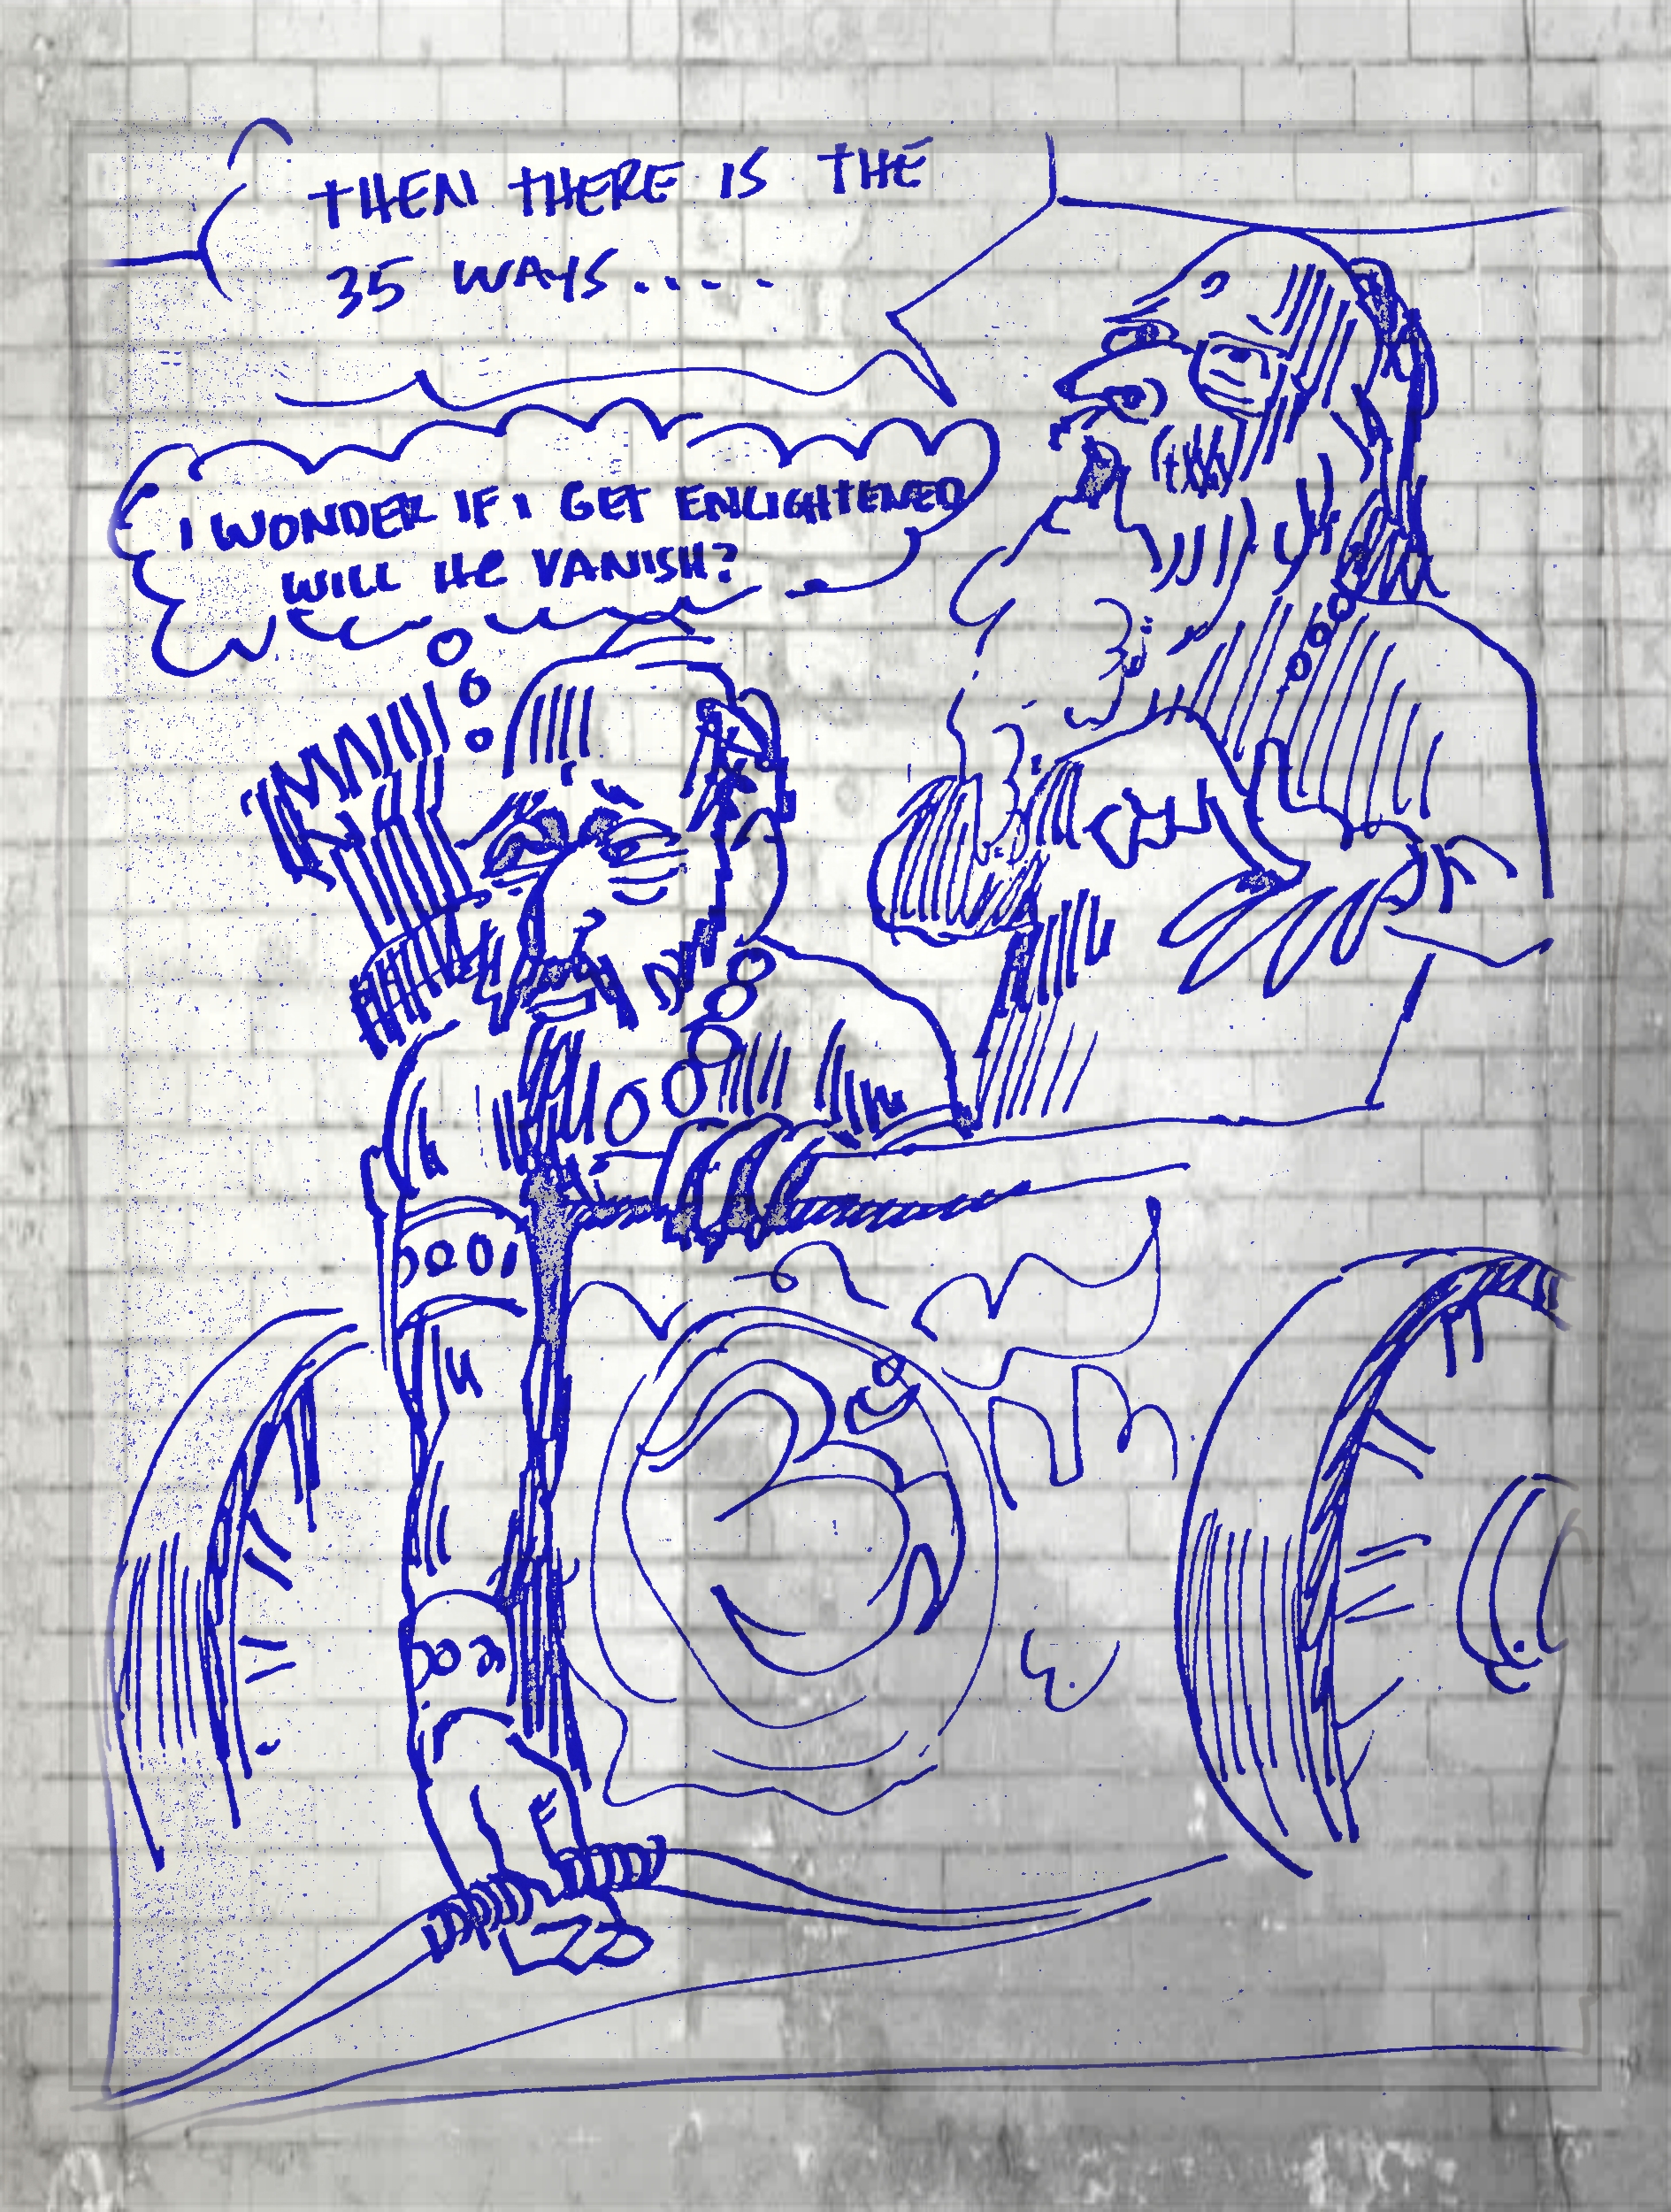 THEN THERE IS THE
35 WAYS....
I WONDER IF I GET ENLIGHTENED
WILL HE VANISH?